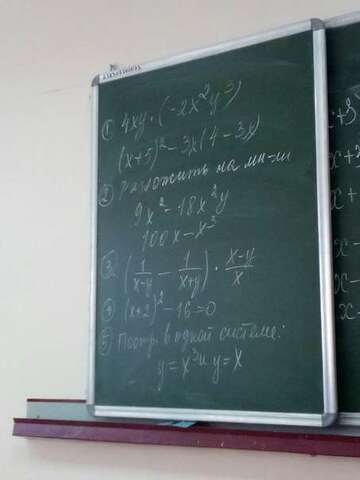 ① 4xy · (-2x²y³)
(x+5)² - 3x(4-3x)
② Разложить на мн-ли
9x² - 18x²y
100x - x³
③ (1/(x-y) - 1/(x+y)) · (x-y)/x
④ (x+2)² - 16 = 0
⑤ Постр. в одной системе:
y = x³ и y = x